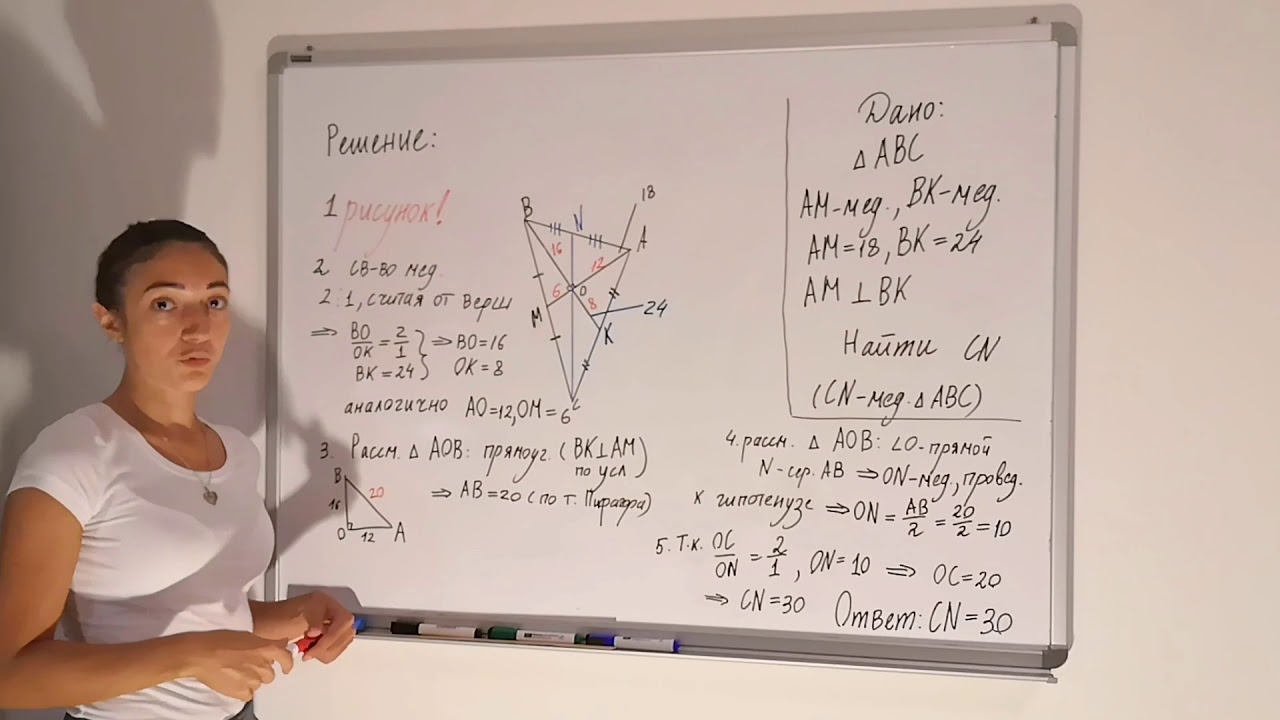 Решение:
1 рисунок!
2 св-во мед.
2:1, считая от верш
⇒ BO/OK = 2/1 } ⇒ BO=16
BK=24 } OK=8
аналогично AO=12, OM=6
B
N
A
18
16
12
6
O
8
24
M
K
C
3. Рассм. △ AOB: прямоуг. (BK⊥AM)
по усл
⇒ AB=20 (по т. Пифагора)
B
16
20
O
12
A
Дано:
△ ABC
AM-мед., BK-мед.
AM=18, BK=24
AM ⊥ BK
Найти CN
(CN-мед. △ ABC)
4. рассм. △ AOB: ∠O-прямой
N-сер. AB ⇒ ON-мед., провед.
к гипотенузе ⇒ ON = AB/2 = 20/2 = 10
5. Т.к. OC/ON = 2/1, ON=10 ⇒ OC=20
⇒ CN=30 Ответ: CN=30